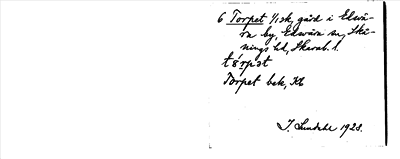 6 Torpet 1/1 sk, gård i Edsvä-
ra by, Edsvära sn, Skå-
nings hd, Skarab. l.
tórpət
Torpet bek, Kb
J. Lundahl 1928.